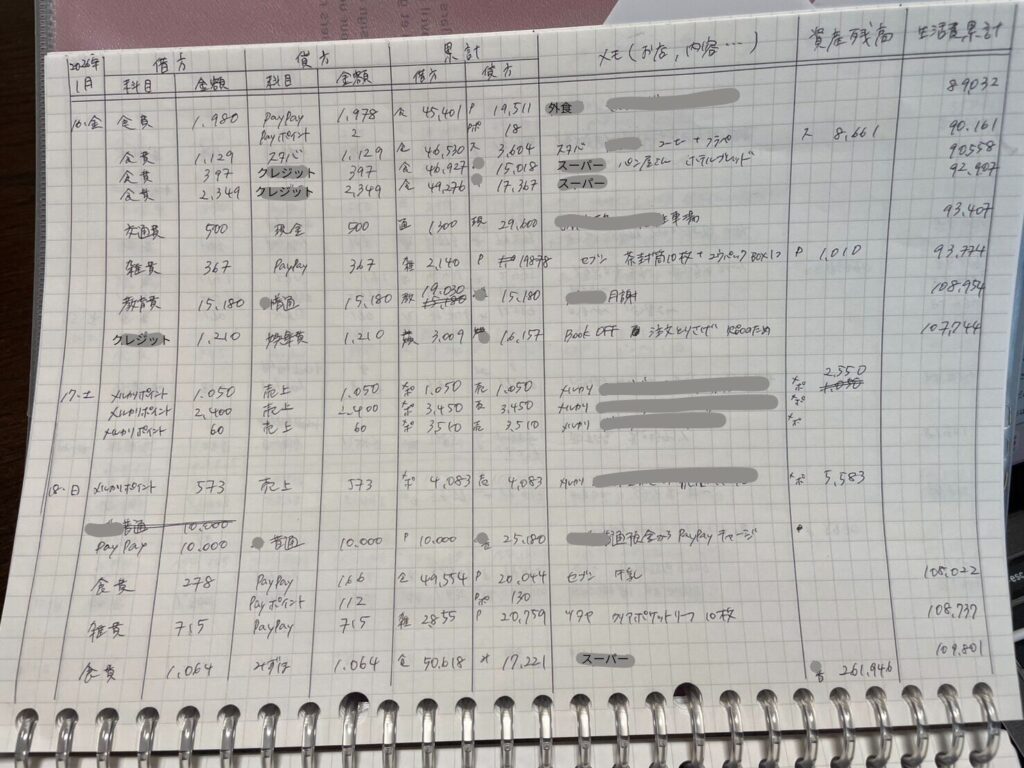 2026年 1月 借方 貸方 累計 メモ(お店,内容…) 資産残高 生活費累計
科目 金額 科目 金額 借方 貸方
89,032
16.金 食費 1,980 PayPay 1,978 食 45,401 P 19,511 外食
Payポイント 2 Pポ 18 90,161
食費 1,129 スタバ 1,129 食 46,530 ス 3,604 スタバ コーヒー+フラペ ス 8,661
90,558
食費 397 クレジット 397 食 46,927 15,018 スーパー パン屋さん ホテルブレッド
92,907
食費 2,349 クレジット 2,349 食 49,276 17,367 スーパー
93,407
交通費 500 現金 500 交 1,300 現 29,600 駐車場
雑費 367 PayPay 367 雑 2,140 P 19878 セブン 茶封筒10枚+ゆうパックBOX P 1,010 93,774
教育費 15,180 普通 15,180 教 19,030 15,180 15,180 月謝 108,954
クレジット 1,210 1,210 3,009 16,157 Book OFF 注文とりさげ 107,744
17.土 メルカリポイント 1,050 売上 1,050 メポ 1,050 売 1,050 メルカリ メポ 2,550
メルカリポイント 2,400 売上 2,400 メポ 3,450 売 3,450 メルカリ メポ
メルカリポイント 60 売上 60 メポ 3,510 売 3,510 メルカリ メポ
18.日 メルカリポイント 573 売上 573 メポ 4,083 売 4,083 メルカリ メポ 5,583
普通 10,000
PayPay 10,000 普通 10,000 P 10,000 25,180 普通預金からPayPayチャージ P
食費 278 PayPay 166 食 49,554 P 20,044 セブン 牛乳 108,022
Payポイント 112 Pポ 130
雑費 715 PayPay 715 雑 2855 P 20,759 ツタヤ クリアポケットリーフ 10枚 108,737
食費 1,064 みずほ 1,064 食 50,618 17,221 スーパー 261,946 109,801
esc